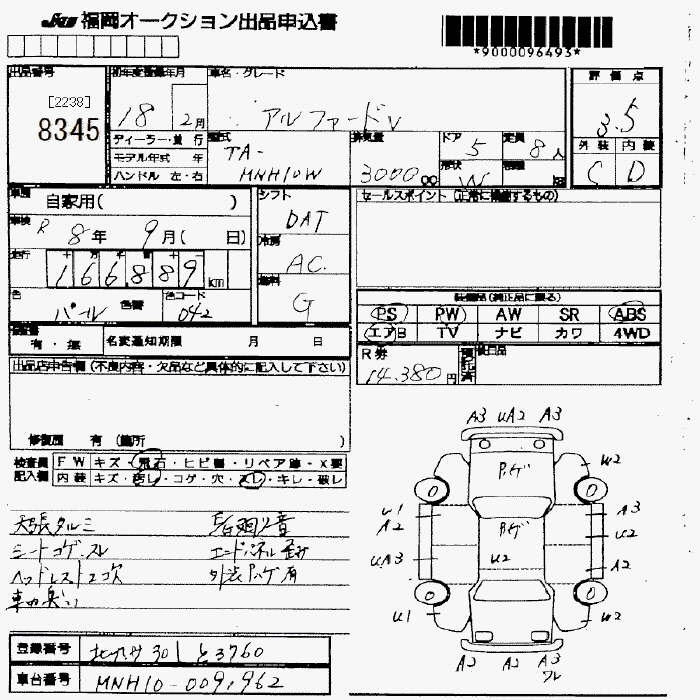 福岡オークション出品申込書
*9000096493*
出品番号
[2238]
8345
初年度登録年月
18 2月
ディーラー・並行
モデル年式 年
ハンドル 左・右
車名・グレード
アルファードV
型式
TA-
MNH10W
排気量
3000cc
ドア
5
形状
W
定員
8人
評価点
3.5
外装 内装
C D
車歴
自家用( )
車検
R 8年 9月( 日)
走行
166,889km
色
パール
色替
色コード
042
シフト
DAT
冷房
AC
燃料
G
セールスポイント (正常に機能するもの)
装備品 (純正品に限る)
PS PW AW SR ABS
エアB TV ナビ カワ 4WD
有・無
名変通知期限 月 日
R券
14,380円
後日品
出品店申告欄 (不良内容・欠品など具体的に記入して下さい)
修復歴 有 (箇所 )
検査員
記入欄
FW キズ・飛石・ヒビ割・リペア跡・X要
内装 キズ・汚レ・コゲ・穴・スレ・キレ・破レ
天張タルミ
シートコゲ・スレ
ヘッドレスト2コ欠
エンドパネル歪
外装ハゲ有
A3 UA2 A3
ハゲ
W2
U1
A2
ハゲ
A3
U2
U2
UA3
A2
U1
W2
A2 A2 A3
ワレ
登録番号
北九州 301 と 3760
車台番号
MNH10-0091962